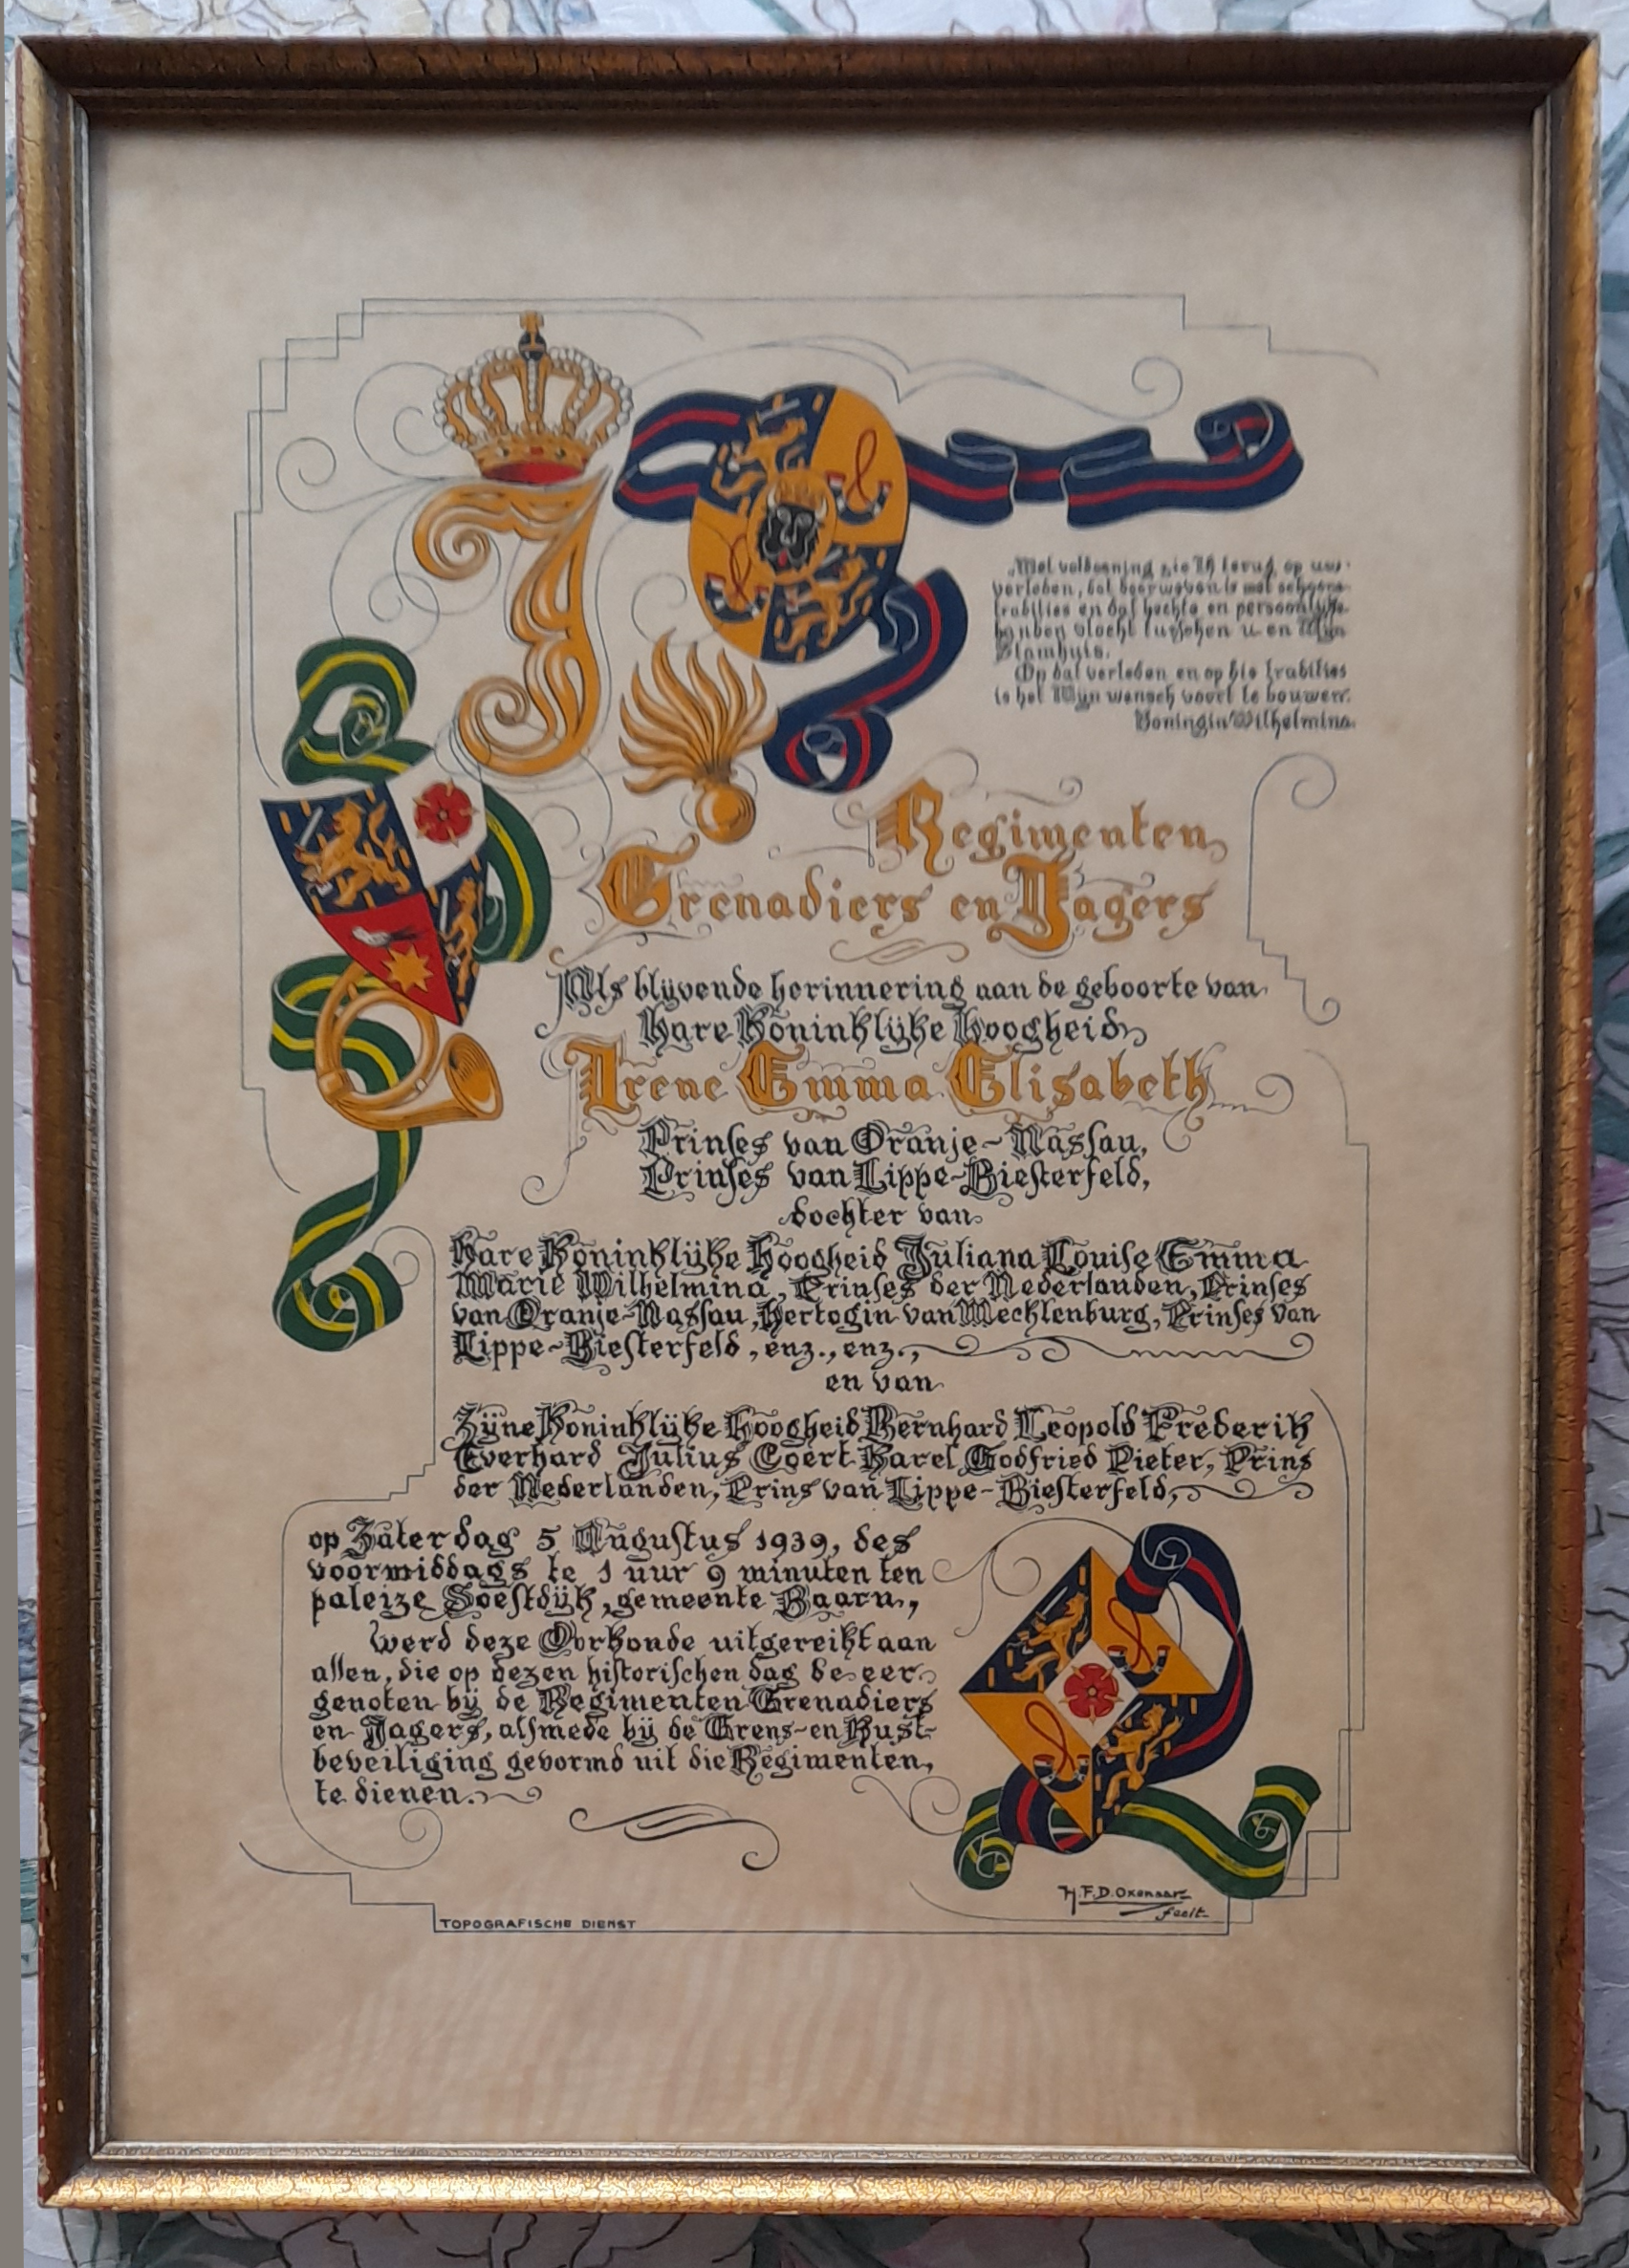 „Met voldoening zie Ik terug op uw
verleden, dat doorweven is met schoone
tradities en dat hechte en persoonlijke
banden vlocht tusschen u en Mijn
Stamhuis.
Op dat verleden en op die tradities
is het Mijn wensch voort te bouwen".
Koningin Wilhelmina.
Regimenten
Grenadiers en Jagers
Als blijvende herinnering aan de geboorte van
Hare Koninklijke Hoogheid
Irene Emma Elisabeth
Prinses van Oranje-Nassau,
Prinses van Lippe-Biesterfeld,
dochter van
Hare Koninklijke Hoogheid Juliana Louise Emma
Marie Wilhelmina, Prinses der Nederlanden, Prinses
van Oranje-Nassau, Hertogin van Mecklenburg, Prinses van
Lippe-Biesterfeld, enz., enz.,
en van
Zijne Koninklijke Hoogheid Bernhard Leopold Frederik
Everhard Julius Coert Karel Godfried Pieter, Prins
der Nederlanden, Prins van Lippe-Biesterfeld,
op Zaterdag 5 Augustus 1939, des
voormiddags te 1 uur 9 minuten ten
paleize Soestdijk, gemeente Baarn,
werd deze Oorkonde uitgereikt aan
allen, die op dezen historischen dag de eer
genoten bij de Regimenten Grenadiers
en Jagers, alsmede bij de Grens- en Kust-
beveiliging gevormd uit die Regimenten,
te dienen.
H.F.D. Oxenaar
fecit
TOPOGRAFISCHE DIENST